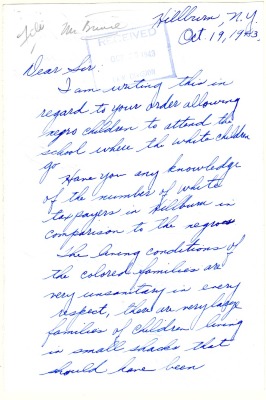 File Mr. Burnie
RECEIVED
Hillburn, N.Y.
Oct. 19, 1943.
Dear Sir:
I am writing this in
regard to your order allowing
negro children to attend the
school where the white children
go
Have you any knowledge
of the number of white
taxpayers in Hillburn in
comparison to the negroes
The living conditions of
the colored families are
very unsanitary in every
respect, there are very large
families of children living
in small shacks that
should have been